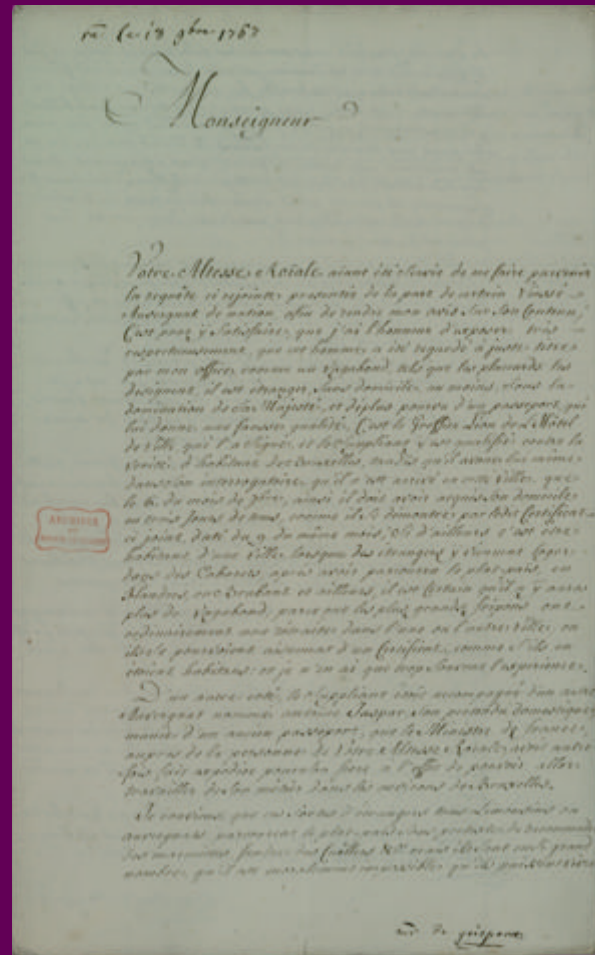 re le 18 9bre 1767
Monseigneur
Votre Altesse Roïale aiant été servie de me faire parvenir
la requête ci rejointe, presentée de la part de certain
Auvergnat de nation afin de rendre mon avis sur son Contenu,
C'est pour y satisfaire, que j'ai l'honneur d'exposer très
respectueusement, que cet homme a été regardé à juste titre
par mon office comme un Vagabond, tels que les placards les
designent, il est étranger, sans domicile, au moins sous la
domination de Sa Majesté, et deplus pourvu d'un passeport, qui
lui donne une fausse qualité. C'est le Greffier de L'Hôtel
de Ville, qui l'a signé, et le Suppliant y est qualifié contre la
verité, d'habitant de Bruxelles, tandis qu'il avoue lui même
dans son interrogatoire, qu'il n'est arrivé en cette Ville, que
le 6 du mois de 7bre, ainsi il doit avoir acquis son domicile
en trois jours de tems, comme il se démontre par le Certificat
ci joint, daté du 9 du même mois; Si d'ailleurs c'est être
habitant d'une Ville lorsque des étrangers y viennent loger
dans des Cabarets, après avoir parcouru le plat-païs, en
Flandres, en Brabant et ailleurs, il est Certain qu'il n'y aura
plus de Vagabond, parce que les plus grands fripons ont
ordinairement une retraite dans l'une ou l'autre Ville, ou
ils se pourvoient aisement d'un Certificat, comme s'ils en
étoient habitans: or je n'en ai que trop souvent l'experience.
D'un autre coté, le Suppliant étoit accompagné d'un autre
Auvergnat nommé Antoine Gaspar, son prétendu domestique,
munie d'un ancien passeport, que le Ministre de france
auprès de la personne de Votre Altesse Roïale avoit autre
fois fait expédier pour son frere à l'effet de pouvoir aller
travailler de son métier dans les environs de Bruxelles.
Je conviens, que ces sortes d'étrangers tous Limousins ou
auvergnats parcourent le plat-païs sous prétexte de raccommoder
des marmittes, fondre des Cuilliers &c mais ils sont en si grand
nombre, qu'il est moralement impossible qu'ils puissent vivre
ARCHIVES